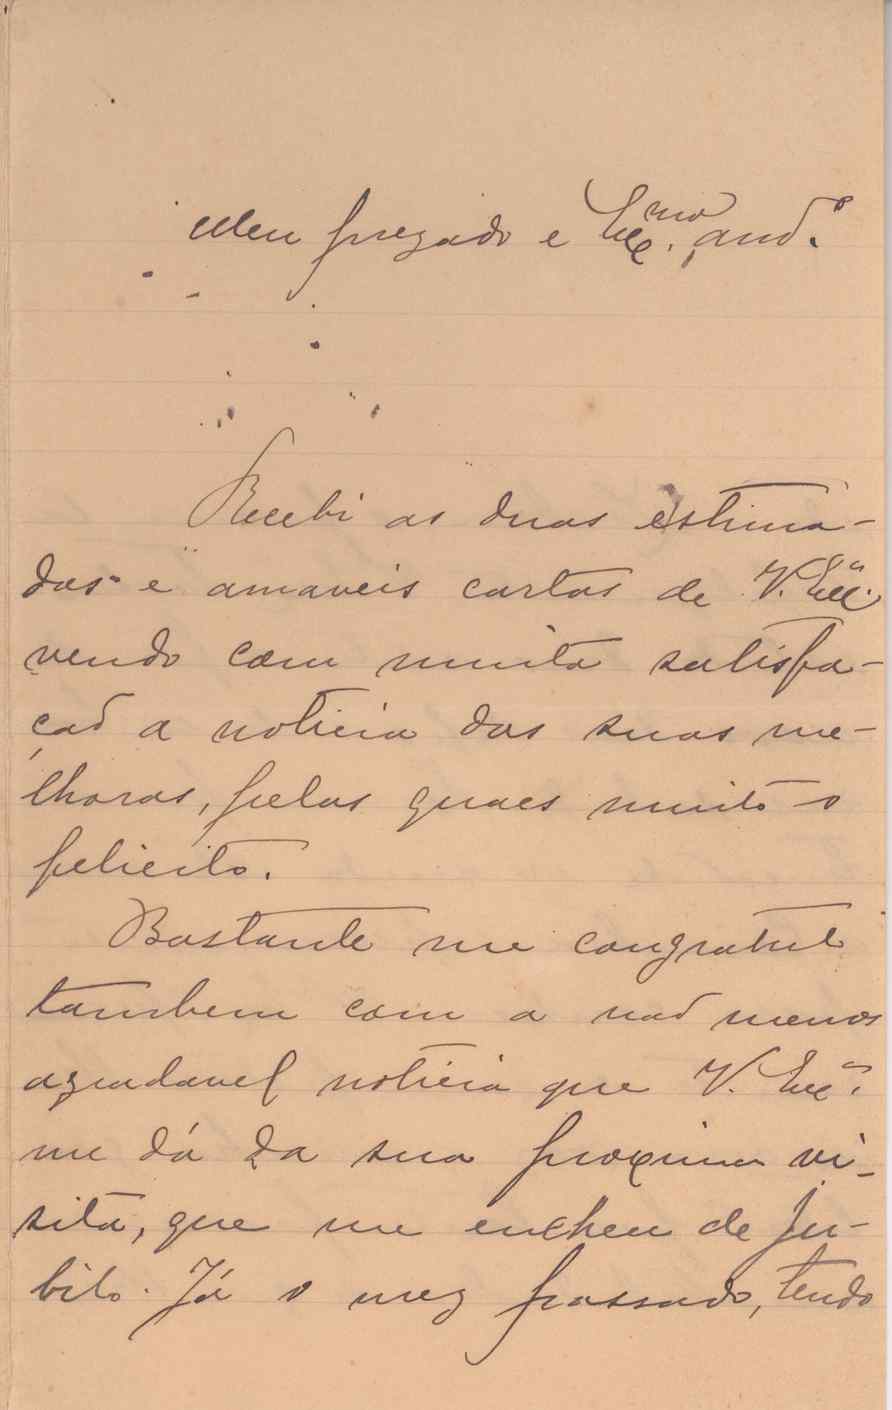 Meu prezado e Exmo. amo.
Recebi as duas estima-
das e amaveis cartas de V. Exa.
vendo com muita satisfa-
çaõ a noticia das suas me-
lhoras, pelas quaes muito o
felicito.
Bastante me congratulo
tambem com a naõ menos
agradavel noticia que V. Exa.
me dá da sua proxima vi-
sita, que me encheu de ju-
bilo. Já o mez passado, tendo